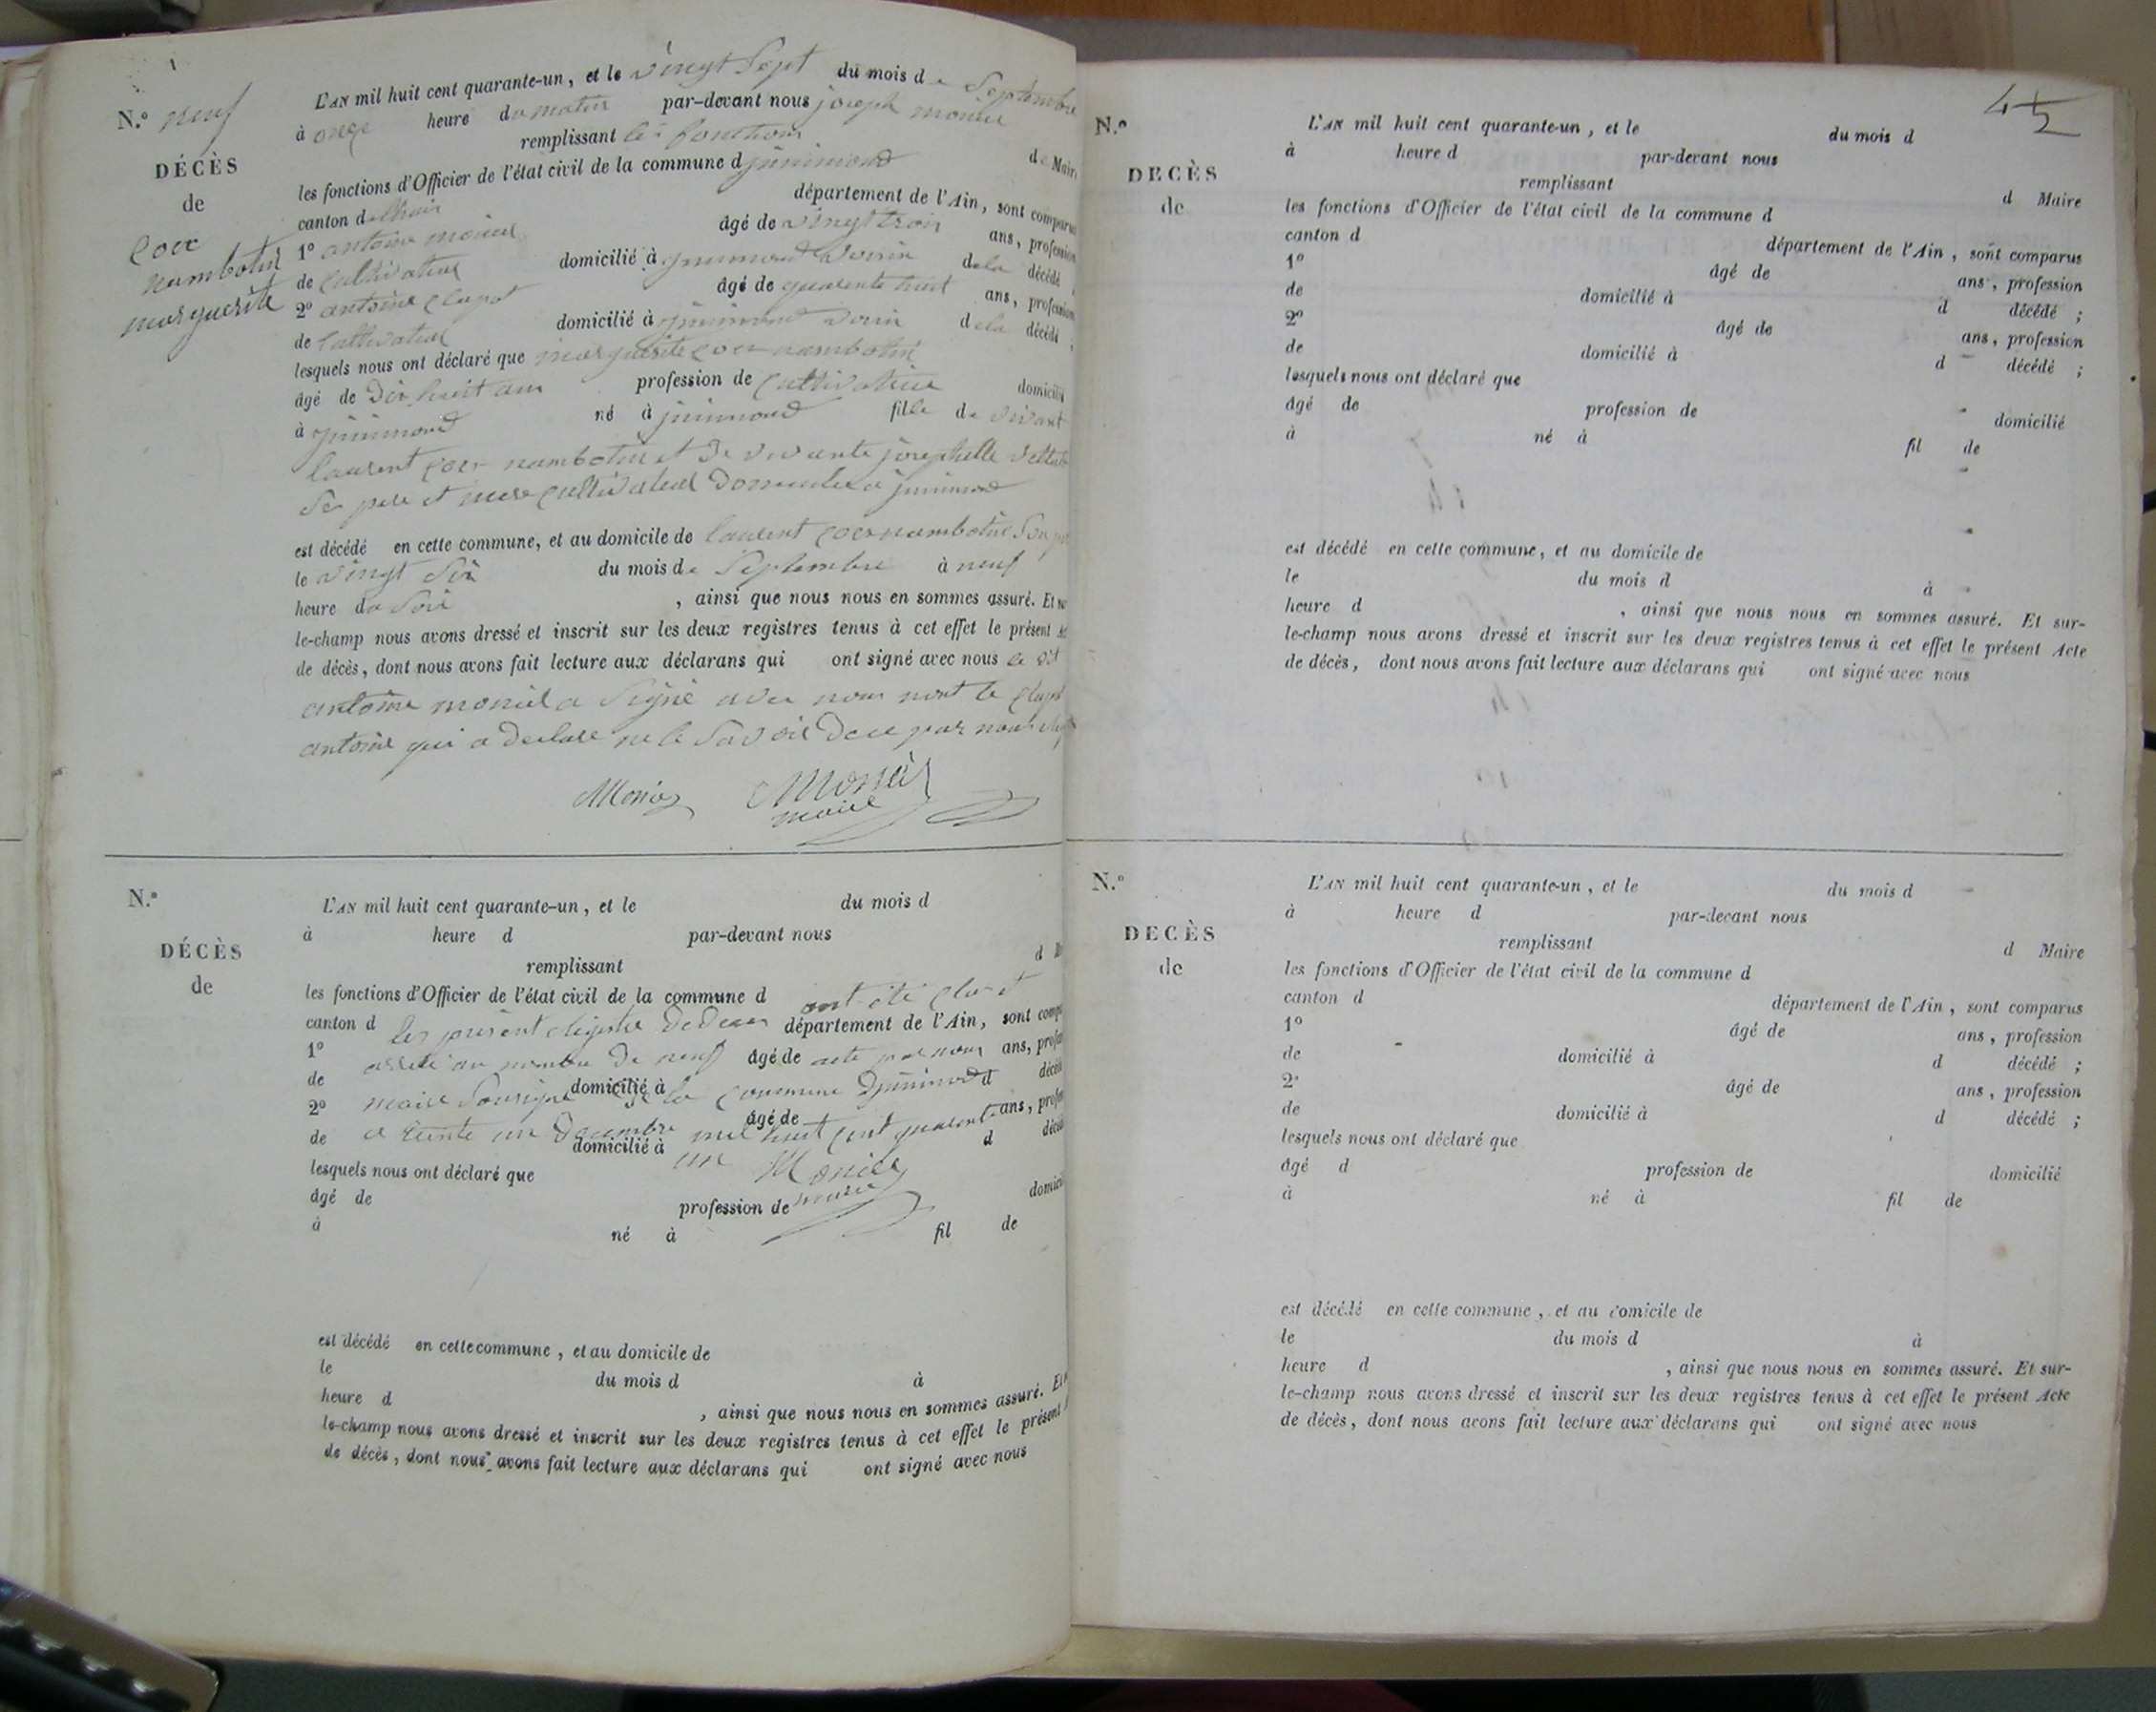 N.° neuf
DÉCÈS
de
Coex
nambotin
marguerite
L'AN mil huit cent quarante-un, et le vingt Sept du mois de Septembre
à onze heure du matin par-devant nous joseph monier
remplissant les fonctions
de Maire
les fonctions d'Officier de l'état civil de la commune d jnnimond
canton de lhuis département de l'Ain, sont comparus
1° antoine monier âgé de vingt trois ans, profession
de Cultivateur domicilié à jnnimond voisin de la décédé,
2° antoine clapot âgé de quarente huit ans, profession
de Cultivateur domicilié à jnnimond voisin de la décédé,
lesquels nous ont déclaré que marguerite Coex nambotin
âgé de Dix huit ans profession de Cultivatrice domicilié
à jnnimond né à jnnimond fille de vivant
laurent Coex nambotin et De vivante josephette
Ses pere et mere Cultivateur Domicilie a jnnimond
est décédé en cette commune, et au domicile de laurent Coex nambotin Son
le vingt Six du mois de Septembre à neuf
heure du Soir , ainsi que nous nous en sommes assuré. Et
le-champ nous avons dressé et inscrit sur les deux registres tenus à cet effet le présent
de décès, dont nous avons fait lecture aux déclarans qui ont signé avec nous le dit
antoine monier a Signé avec nous nont le
antoine qui a declare ne le Savoir par nous
Monier Monier
maire
N.°
DÉCÈS
de
L'AN mil huit cent quarante-un, et le du mois d
à heure d par-devant nous
remplissant
d
les fonctions d'Officier de l'état civil de la commune d ont été clos et
canton d les présent régistre De Deces département de l'Ain, sont
1° arreté au nombre De neuf âgé de acte par nous ans,
de domicilié à
2° maire Sousigné de la Commune Djnnimond âgé de ans,
de a trente un Decembre mil huit Cent quarente domicilié à d
un Monier
maire
lesquels nous ont déclaré que
âgé de profession de
à né à fil de
est décédé en cette commune, et au domicile de
le du mois d à
heure d , ainsi que nous nous en sommes assuré.
le-champ nous avons dressé et inscrit sur les deux registres tenus à cet effet le présent
de décès, dont nous avons fait lecture aux déclarans qui ont signé avec nous
N.°
DÉCÈS
de
L'AN mil huit cent quarante-un, et le du mois d
à heure d par-devant nous
remplissant
d Maire
les fonctions d'Officier de l'état civil de la commune d
canton d département de l'Ain, sont comparus
1° âgé de ans, profession
de domicilié à d décédé ;
2° âgé de ans, profession
de domicilié à d décédé ;
lesquels nous ont déclaré que
âgé de profession de domicilié
à né à fil de
est décédé en cette commune, et au domicile de
le du mois d à
heure d , ainsi que nous nous en sommes assuré. Et sur-
le-champ nous avons dressé et inscrit sur les deux registres tenus à cet effet le présent Acte
de décès, dont nous avons fait lecture aux déclarans qui ont signé avec nous
N.°
DÉCÈS
de
L'AN mil huit cent quarante-un, et le du mois d
à heure d par-devant nous
remplissant
d Maire
les fonctions d'Officier de l'état civil de la commune d
canton d département de l'Ain, sont comparus
1° âgé de ans, profession
de domicilié à d décédé ;
2° âgé de ans, profession
de domicilié à d décédé ;
lesquels nous ont déclaré que
âgé d profession de domicilié
à né à fil de
est décédé en cette commune, et au domicile de
le du mois d à
heure d , ainsi que nous nous en sommes assuré. Et sur-
le-champ nous avons dressé et inscrit sur les deux registres tenus à cet effet le présent Acte
de décès, dont nous avons fait lecture aux déclarans qui ont signé avec nous